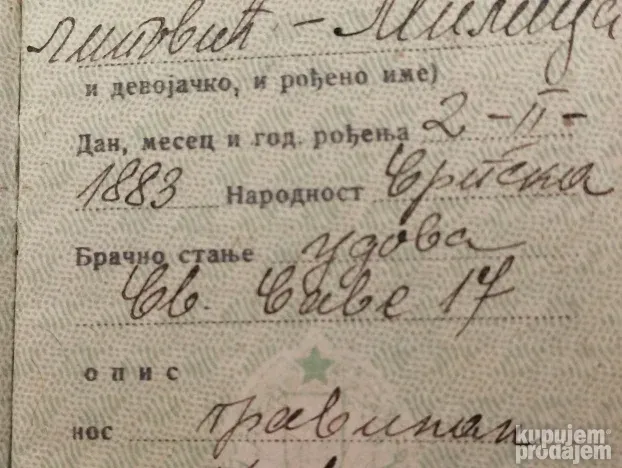 литовић - Милица
и девојачко, и рођено име)
Дан, месец и год. рођења 2-II-
1883 Народност Српска
Брачно стање удова
Св. Саве 17
опис
нос правилан
kupujem
prodajem